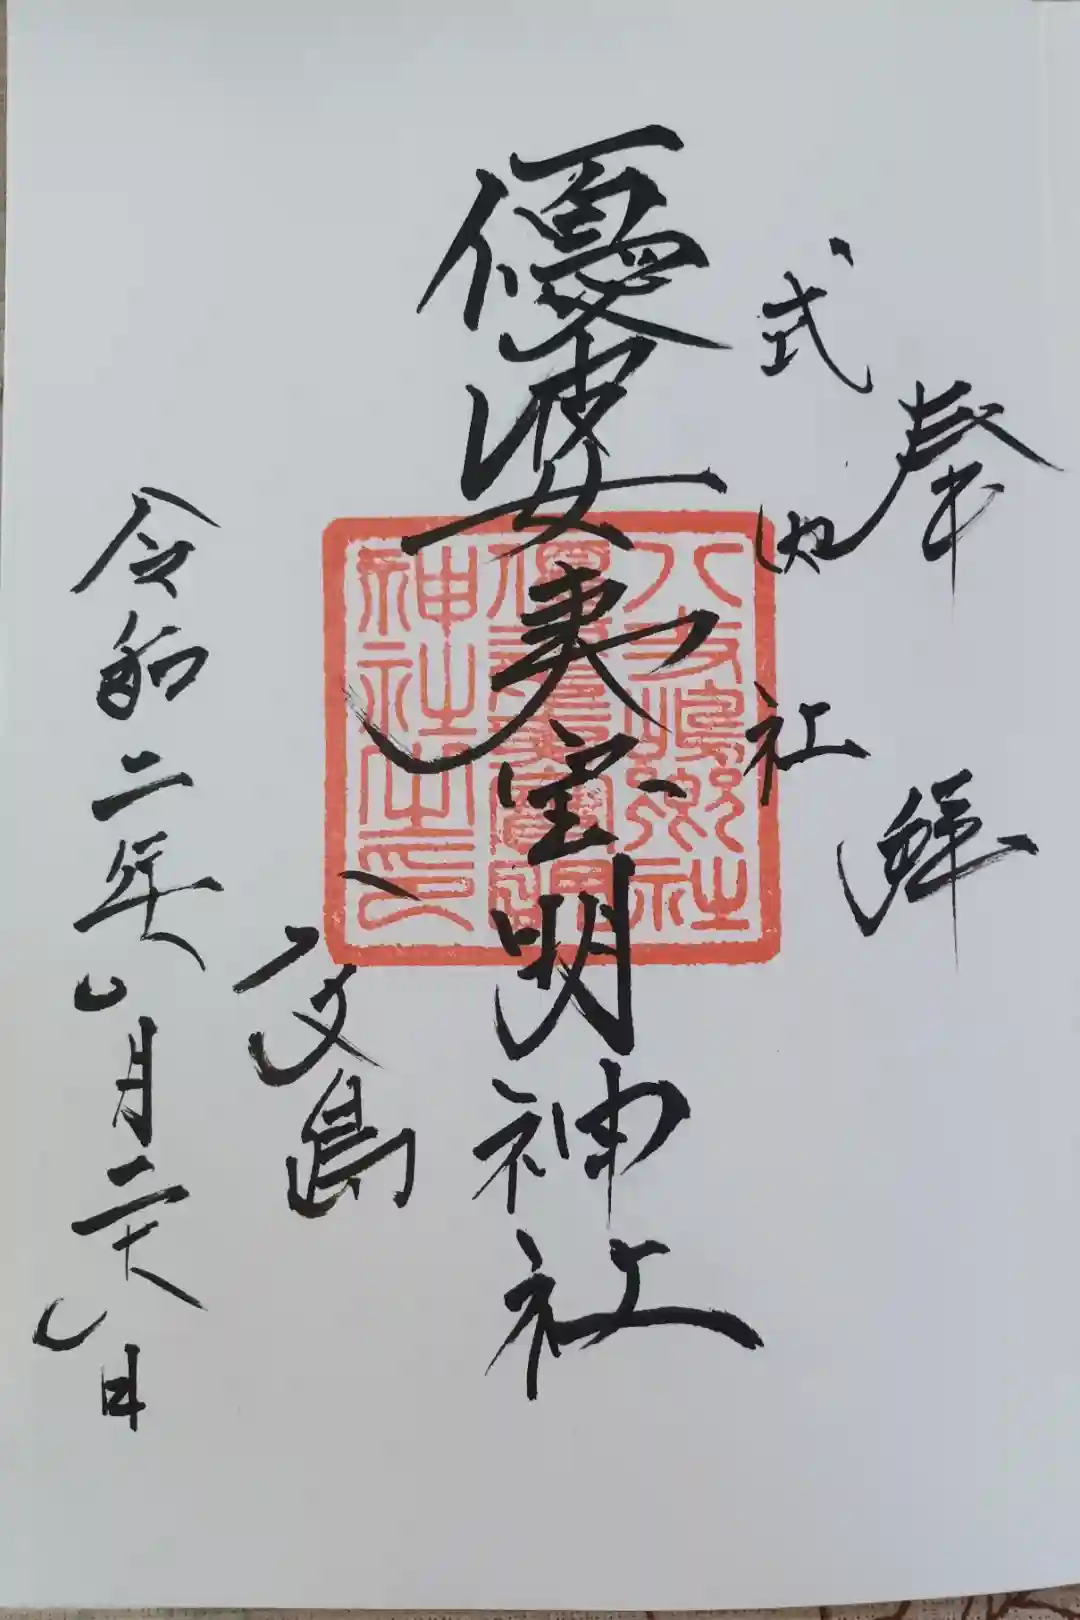 奉拝
式内社
優婆夷宝明神社
八丈島
令和二年八月二十八日
八丈嶋郷社
優婆夷寶明
神社之印